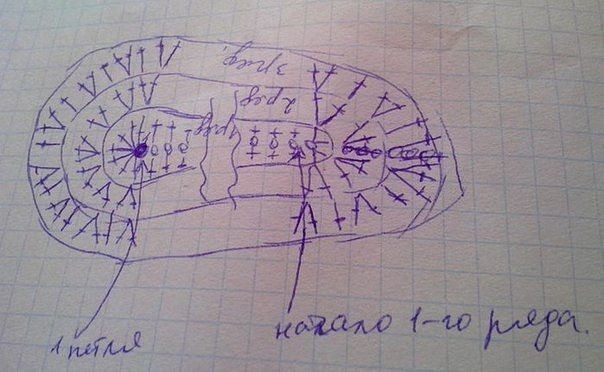 3 ряд.
2 ряд
1 ряд
1 петля
начало 1-го ряда.